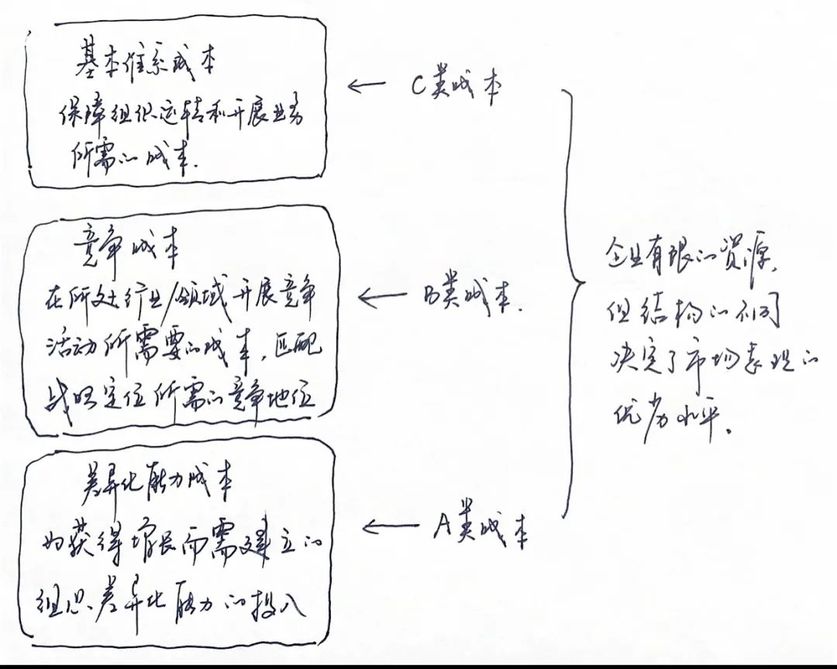 基本维系成本
保障组织运转和开展业务
所需的成本.
← C类成本
竞争成本
在所处行业/领域开展竞争
活动所需要的成本,匹配
战略定位所需的竞争地位
← B类成本.
差异化能力成本
为获得增长而需建立的
组织差异化能力的投入
← A类成本
企业有限的资源,
但结构的不同
决定了市场表现的
优劣水平。